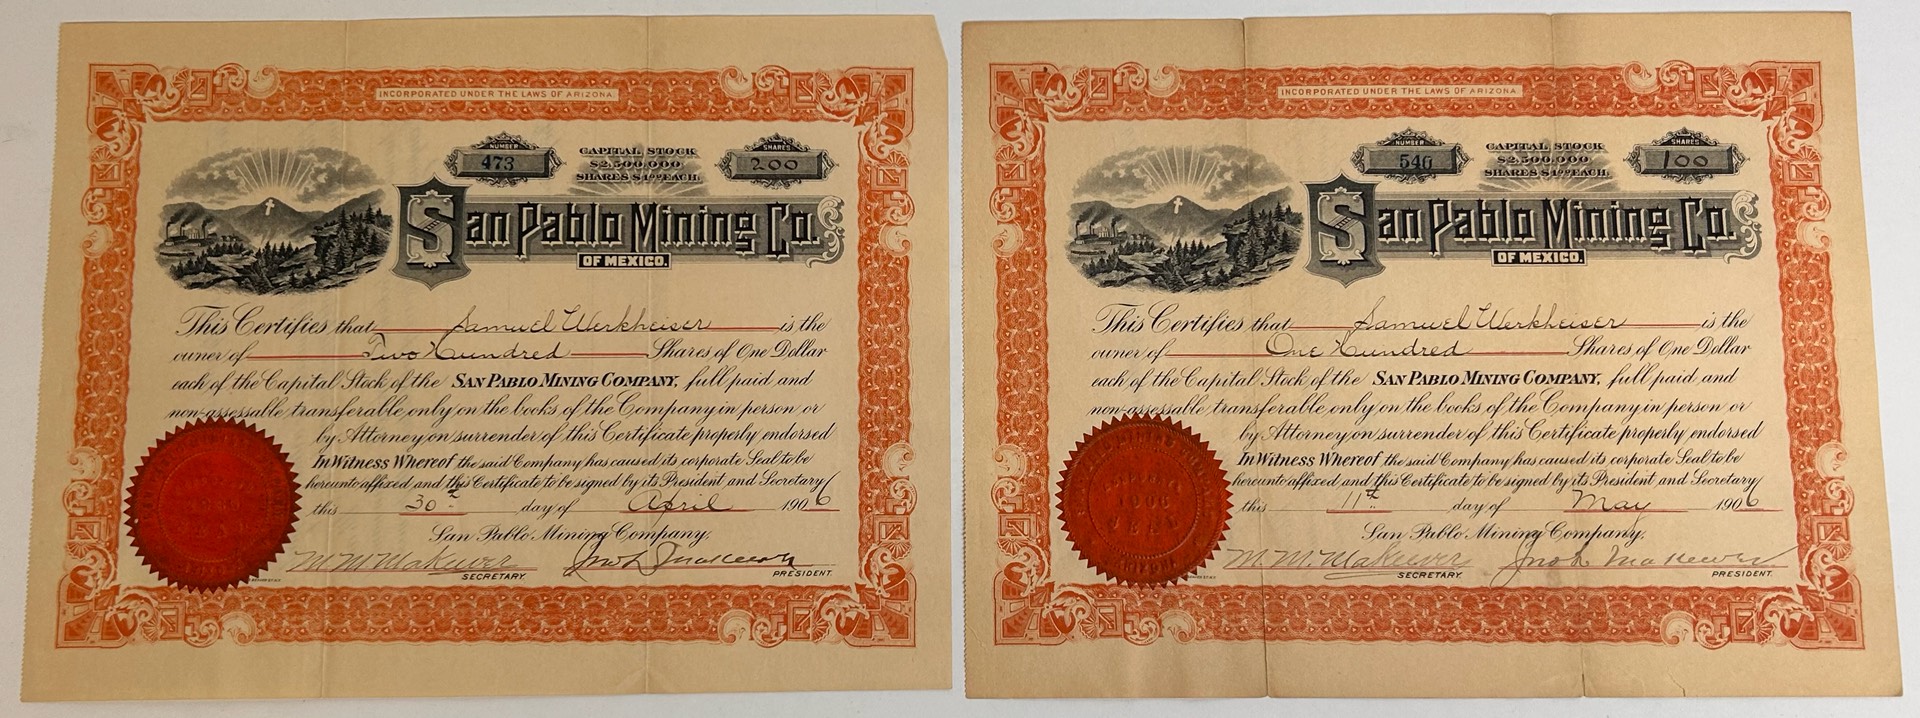 INCORPORATED UNDER THE LAWS OF ARIZONA.
NUMBER
473
CAPITAL STOCK
$2,500,000
SHARES $1.00 EACH.
SHARES
200
San Pablo Mining Co.
OF MEXICO.
This Certifies that Samuel Werkheiser is the
owner of Two Hundred Shares of One Dollar
each of the Capital Stock of the SAN PABLO MINING COMPANY, full paid and
non-assessable transferable only on the books of the Company in person or
by Attorney on surrender of this Certificate properly endorsed
In Witness Whereof the said Company has caused its corporate Seal to be
hereunto affixed and this Certificate to be signed by its President and Secretary
this 30th day of April 1906
San Pablo Mining Company.
M M Makever
SECRETARY.
PRESIDENT.
INCORPORATED UNDER THE LAWS OF ARIZONA.
NUMBER
546
CAPITAL STOCK
$2,500,000
SHARES $1.00 EACH.
SHARES
100
San Pablo Mining Co.
OF MEXICO.
This Certifies that Samuel Werkheiser is the
owner of One Hundred Shares of One Dollar
each of the Capital Stock of the SAN PABLO MINING COMPANY, full paid and
non-assessable transferable only on the books of the Company in person or
by Attorney on surrender of this Certificate properly endorsed
In Witness Whereof the said Company has caused its corporate Seal to be
hereunto affixed and this Certificate to be signed by its President and Secretary
this 11th day of May 1906
San Pablo Mining Company.
1906
SEAL
M. M. Makever
SECRETARY.
Jno L Makever
PRESIDENT.